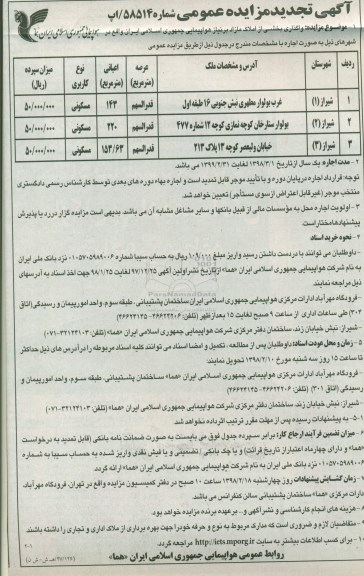 آگهی تجدید مزایده عمومی شماره ۵۸۵۱۴/اپ
موضوع مزایده: واگذاری بخشی از املاک مازاد بر نیاز هواپیمایی جمهوری اسلامی ایران واقع در
شهرهای ذیل به صورت اجاره با مشخصات مندرج در جدول ذیل از طریق مزایده عمومی
ردیف شهرستان آدرس و مشخصات ملک عرصه (مترمربع) اعیانی (مترمربع) نوع کاربری میزان سپرده (ریال)
۱ شیراز (۱) غرب بولوار مطهری نبش جنوبی ۱۶ طبقه اول قدرالسهم ۱۴۳ مسکونی ۵۰/۰۰۰/۰۰۰
۲ شیراز (۲) بولوار ستارخان کوچه نمازی کوچه ۱۲ شماره ۴۷۷ قدرالسهم ۲۲۰ مسکونی ۵۰/۰۰۰/۰۰۰
۳ شیراز (۳) خیابان ولیعصر کوچه ۱۳ پلاک ۲۱۳ قدرالسهم ۱۵۳/۶۳ مسکونی ۵۰/۰۰۰/۰۰۰
۲- مدت اجاره: یک سال از تاریخ ۱۳۹۸/۳/۱ لغایت ۱۳۹۹/۲/۳۱ می باشد.
توجه: قرارداد اجاره در پایان دوره و با تأیید موجر قابل تمدید است و اجاره بهاء دوره های بعدی توسط کارشناس رسمی دادگستری
منتخب موجر (غیر قابل اعتراض از سوی مستأجر) تعیین خواهد شد.
۳- اولویت اجاره محل به مؤسسات مالی از قبیل بانکها و سایر مشاغل مشابه آن می باشد. بدیهی است مزایده گزار در رد یا پذیرش
پیشنهادها مختار است.
۴- نحوه خرید اسناد
- داوطلبان می توانند با در دست داشتن رسید واریز مبلغ ۱۰۹/۰۰۰ ریال به حساب سیبا شماره ۰۱۰۵۷۰۵۹۸۹۰۰۶ نزد بانک ملی ایران
به نام شرکت هواپیمایی جمهوری اسلامی ایران «هما» از تاریخ نشر اولین آگهی ۹۷/۱۲/۲۵ لغایت ۹۸/۱/۲۵ جهت اخذ اسناد به آدرسهای
ذیل مراجعه نمایند.
- فرودگاه مهرآباد ادارات مرکزی هواپیمایی جمهوری اسلامی ایران ساختمان پشتیبانی، طبقه سوم، واحد امور پیمان و رسیدگی (اتاق
۳۰۶) طی ساعات اداری از ساعت ۹ صبح لغایت ۱۵ بعدازظهر (تلفن: ۴۶۶۲۴۲۰۶-۴۶۶۲۳۱۳۵)
- شیراز: نبش خیابان زند، ساختمان دفتر مرکزی شرکت هواپیمایی جمهوری اسلامی ایران «هما» (تلفن: ۳۲۱۲۴۱۰۳-۰۷۱)
۵- زمان و محل عودت اسناد: داوطلبان پس از مطالعه، تکمیل و امضا اسناد می توانند کلیه اسناد مربوطه را در آدرس های ذیل حداکثر
تا ساعت ۱۵ روز سه شنبه مورخ ۱۳۹۸/۲/۱۰ تحویل نمایند:
- فرودگاه مهرآباد ادارات مرکزی هواپیمایی جمهوری اسلامی ایران «هما» ساختمان پشتیبانی، طبقه سوم، واحد امور پیمان و
رسیدگی (اتاق ۳۰۱)
- شیراز: نبش خیابان زند، ساختمان دفتر مرکزی شرکت هواپیمایی جمهوری اسلامی ایران «هما» (تلفن: ۳۲۱۲۴۱۰۳-۰۷۱)
۵-۱- به پیشنهادات رسیده پس از مهلت مقرر ترتیب اثر داده نخواهد شد.
۶- میزان تضمین فرآیند ارجاع کار: برابر سپرده جدول فوق می بایست به صورت ضمانت نامه بانکی (قابل تمدید به درخواست
«هما» و دارای چهارماه اعتبار از تاریخ قرائت) و یا چک بانکی / تضمینی و یا فیش نقدی واریز شده به حساب سیبا به شماره
۰۱۰۵۷۰۵۹۸۹۰۰۶ نزد بانک ملی ایران به نام شرکت هواپیمایی جمهوری اسلامی ایران «هما» ارائه گردد.
۷- زمان گشایش پیشنهادات: روز چهارشنبه ۱۳۹۸/۲/۱۸ ساعت ۱۰ صبح در دفتر کمیسیون مزایده واقع در تهران، فرودگاه مهرآباد،
ادارات مرکزی «هما» ساختمان پشتیبانی سالن کنفرانس می باشد.
۸- هزینه های انجام کارشناسی و نشر آگهی و... برعهده برنده مزایده خواهد بود.
۹- متقاضیان لازم و ضروری است که مدارک مربوط به نوع و حرفه خود را جهت بهره برداری از ملاک اداری و تجاری را داشته باشند
۱۰- برای کسب اطلاعات بیشتر به سایت http://iets.mporg.ir مراجعه گردد.
روابط عمومی هواپیمایی جمهوری اسلامی ایران «هما»